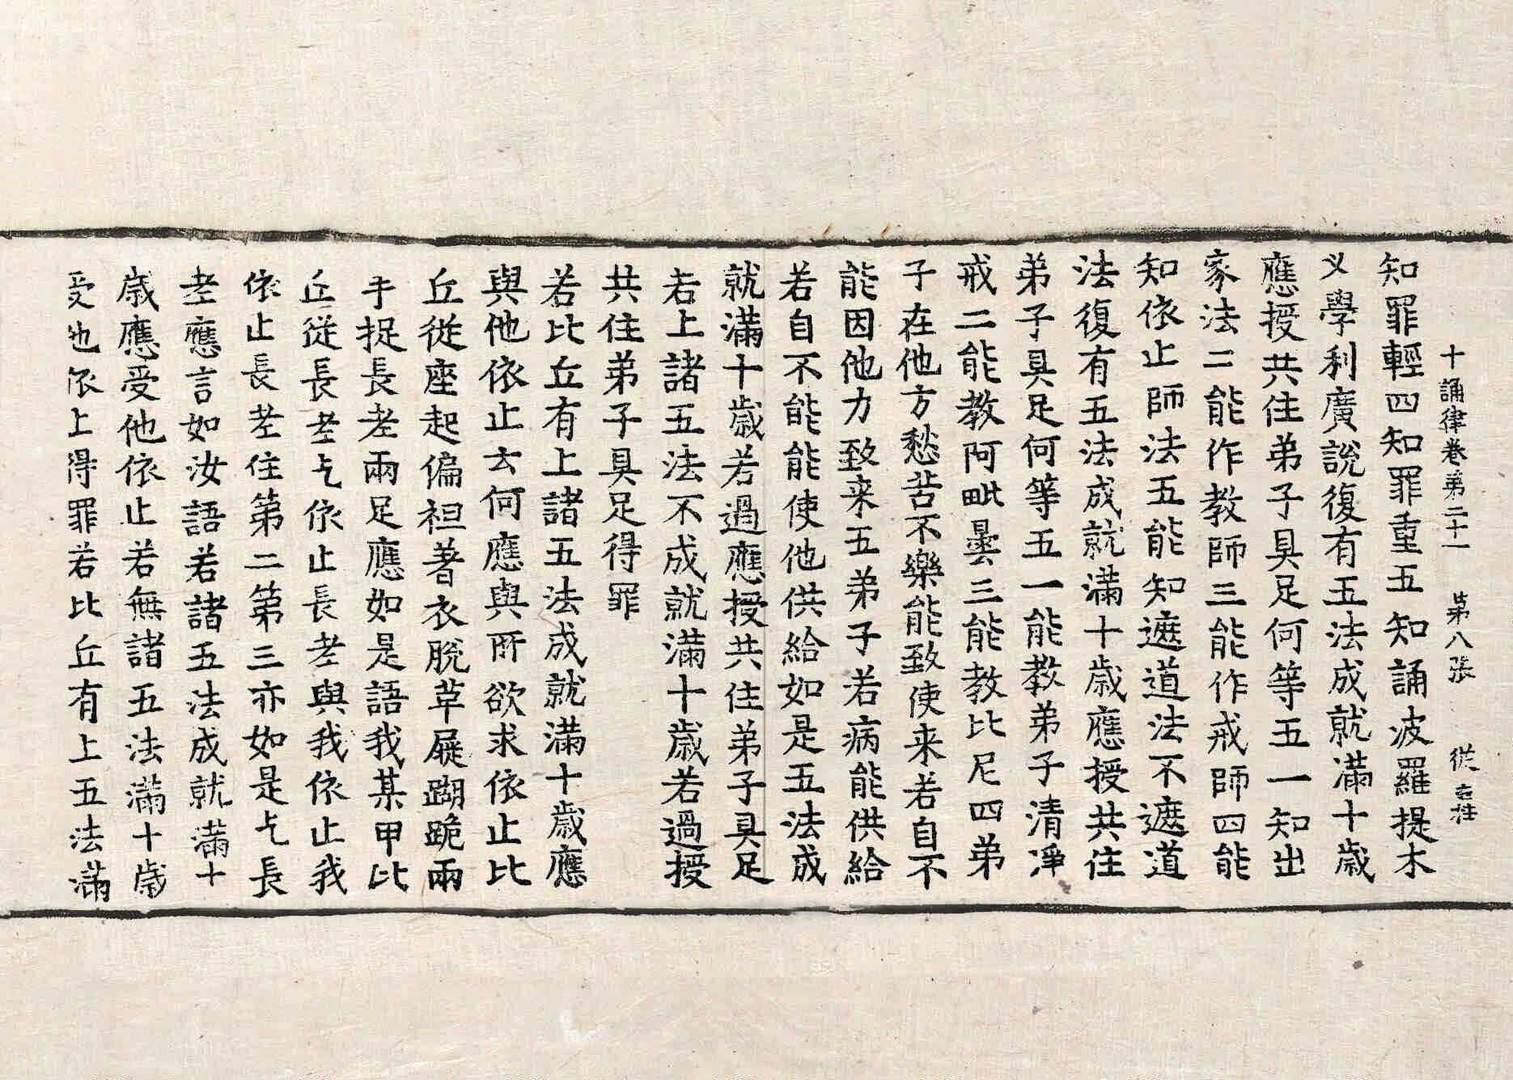 十誦律卷第二十一　第八張　從
知罪輕四知罪重五知誦波羅提木
叉學利廣說復有五法成就滿十歲
應授共住弟子具足何等五一知出
家法二能作教師三能作戒師四能
知依止師法五能知遮道法不遮道
法復有五法成就滿十歲應授共住
弟子具足何等五一能教弟子清淨
戒二能教阿毗曇三能教比尼四弟
子在他方愁苦不樂能致使来若自不
能因他力致来五弟子若病能供給
若自不能能使他供給如是五法成
就滿十歲若過應授共住弟子具足
若上諸五法不成就滿十歲若過授
共住弟子具足得罪
若比丘有上諸五法成就滿十歲應
與他依止云何應與所欲求依止比
丘從座起偏袒著衣脫草屣蹦跪兩
手捉長老兩足應如是語我某甲比
丘從長老乞依止長老與我依止我
依止長老住第二第三亦如是乞長
老應言如汝語若諸五法成就滿十
歲應受他依止若無諸五法滿十歲
受他依止得罪若比丘有上五法滿